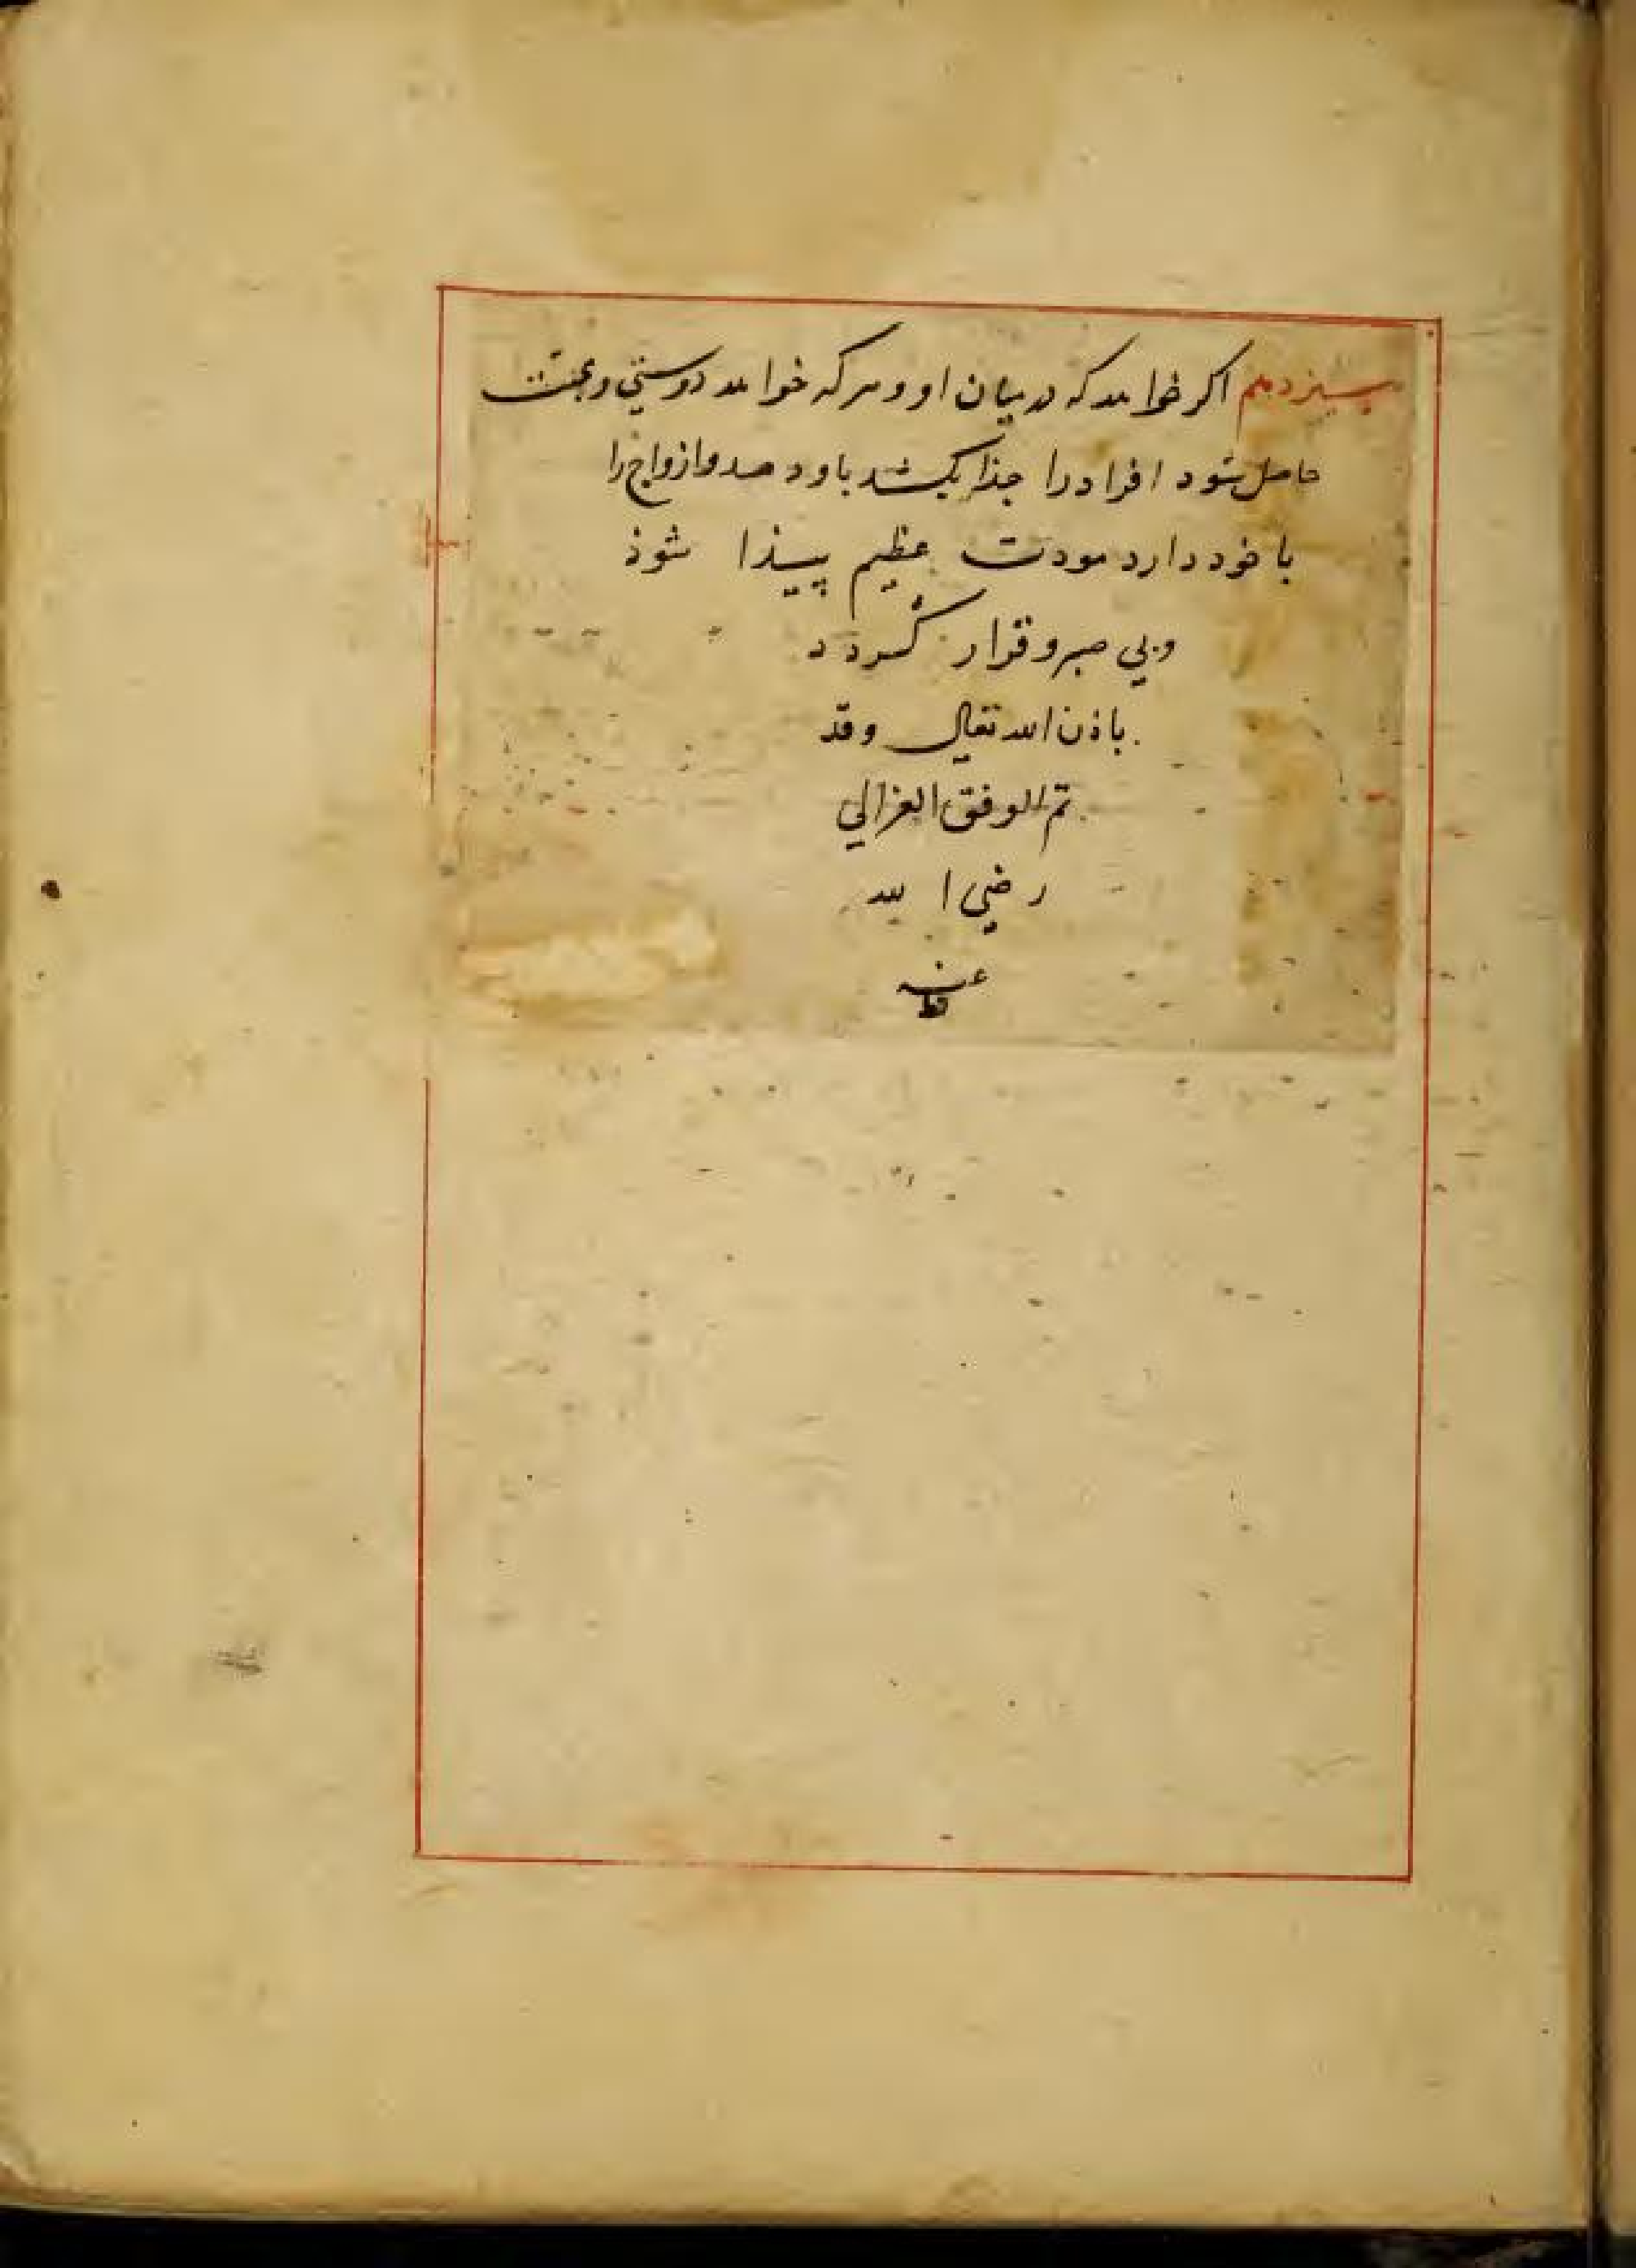 سیزدهم اکر خواهد که در میان او و هر که خواهد دوستی و محبت
حاصل شود افراد را جذا بکشد باو دهد و ازواج را
با خود دارد مودت عظیم پیذا شوذ
و بی صبر و قرار گردد
باذن الله تعالی وقد
تم الوفق الغزالي
رضي الله
عنه